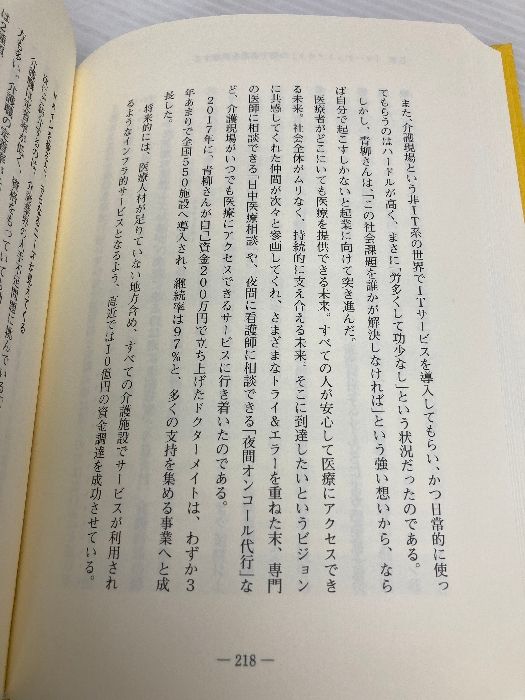 また、介護現場という非IT系の世界でITサービスを導入してもらい、かつ日常的に使っ
てもらうのはハードルが高く、まさに「労多くして功少なし」という状況だったのである。
しかし、青柳さんは、「この社会課題を誰かが解決しなければ」という強い想いから、なら
ば自分で起こすしかないと起業に向けて突き進んだ。
医療者がどこにいても医療を提供できる未来。すべての人が安心して医療にアクセスでき
る未来。社会全体がムリなく、持続的に支え合える未来。そこに到達したいというビジョン
に共感してくれた仲間が次々と参画してくれ、さまざまなトライ&エラーを重ねた末、専門
の医師に相談できる「日中医療相談」や、夜間に看護師に相談できる「夜間オンコール代行」な
ど、介護現場がいつでも医療にアクセスできるサービスに行き着いたのである。
2017年に、青柳さんが自己資金200万円で立ち上げたドクターメイトは、わずか3
年あまりで全国550施設へ導入され、継続率は97%と、多くの支持を集める事業へと成
長した。
将来的には、医療人材が足りていない地方含め、すべての介護施設でサービスが利用され
るようなインフラ的サービスとなるよう、直近では10億円の資金調達を成功させている。
— 218 —